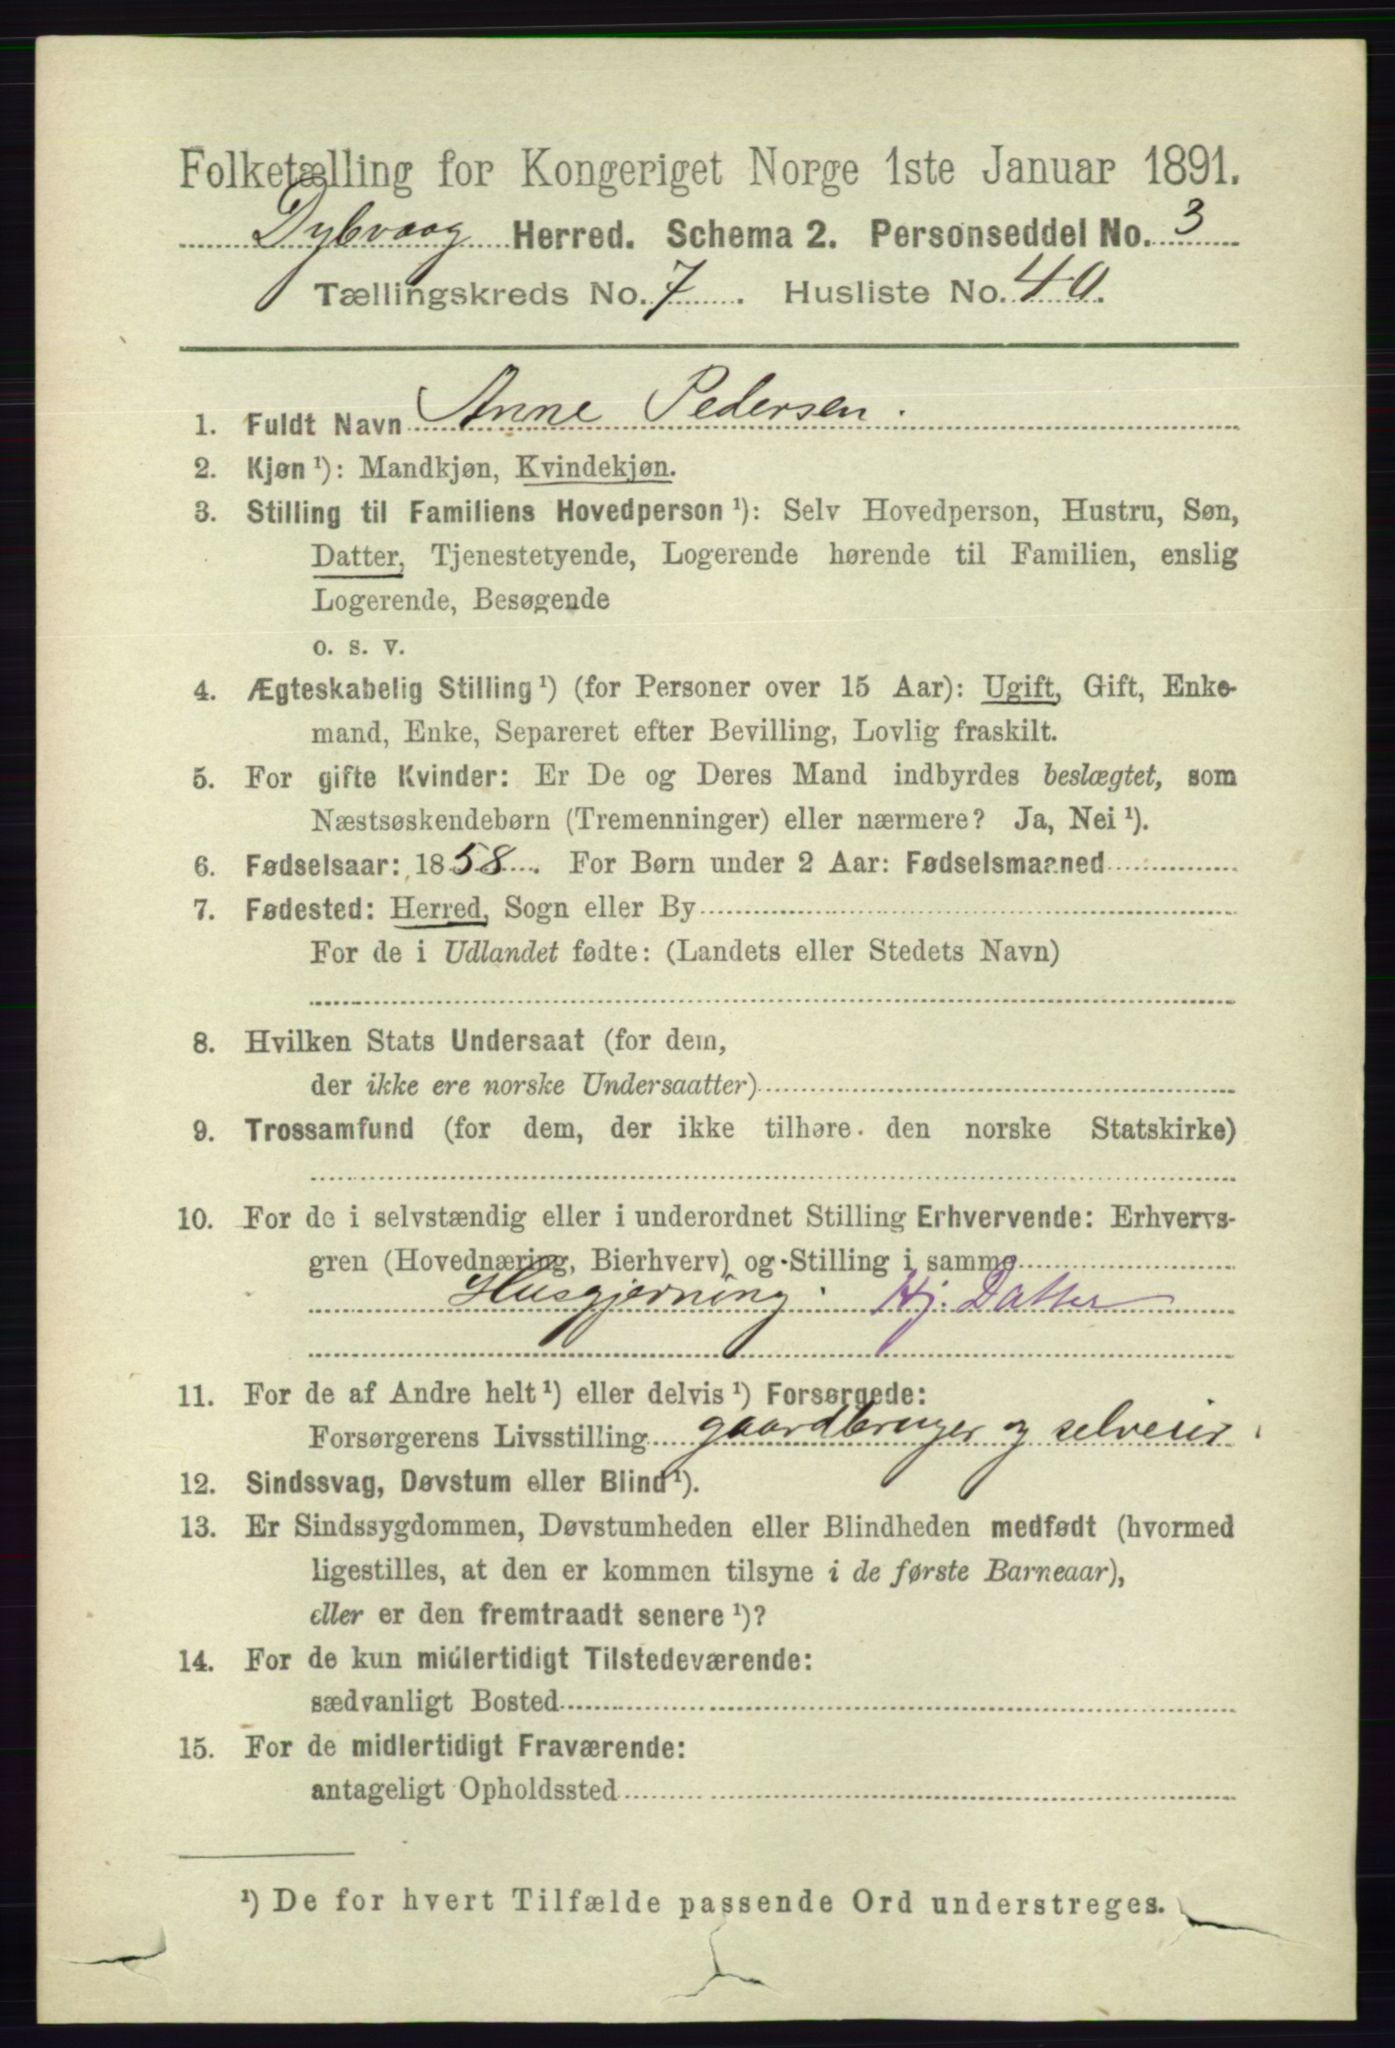 Folketælling for Kongeriget Norge 1ste Januar 1891.
Dybvaag Herred. Schema 2. Personseddel No. 3
Tællingskreds No. 7. Husliste No. 40.
1. Fuldt Navn Anne Pedersen.
2. Kjøn ¹): Mandkjøn, Kvindekjøn.
3. Stilling til Familiens Hovedperson ¹): Selv Hovedperson, Hustru, Søn,
Datter, Tjenestetyende, Logerende hørende til Familien, enslig
Logerende, Besøgende
o. s. v.
4. Ægteskabelig Stilling ¹) (for Personer over 15 Aar): Ugift, Gift, Enke-
mand, Enke, Separeret efter Bevilling, Lovlig fraskilt.
5. For gifte Kvinder: Er De og Deres Mand indbyrdes beslægtet, som
Næstsøskendebørn (Tremenninger) eller nærmere? Ja, Nei ¹).
6. Fødselsaar: 1858. For Børn under 2 Aar: Fødselsmaaned
7. Fødested: Herred, Sogn eller By
For de i Udlandet fødte: (Landets eller Stedets Navn)
8. Hvilken Stats Undersaat (for dem,
der ikke ere norske Undersaatter)
9. Trossamfund (for dem, der ikke tilhøre den norske Statskirke)
10. For de i selvstændig eller i underordnet Stilling Erhvervende: Erhvervs-
gren (Hovednæring, Bierhverv) og Stilling i samme
Husgjerning. Hj. Datter
11. For de af Andre helt ¹) eller delvis ¹) Forsørgede:
Forsørgerens Livsstilling gaardbruger og selveier
12. Sindssvag, Døvstum eller Blind ¹).
13. Er Sindssygdommen, Døvstumheden eller Blindheden medfødt (hvormed
ligestilles, at den er kommen tilsyne i de første Barneaar),
eller er den fremtraadt senere ¹)?
14. For de kun midlertidigt Tilstedeværende:
sædvanligt Bosted
15. For de midlertidigt Fraværende:
antageligt Opholdssted
¹) De for hvert Tilfælde passende Ord understreges.